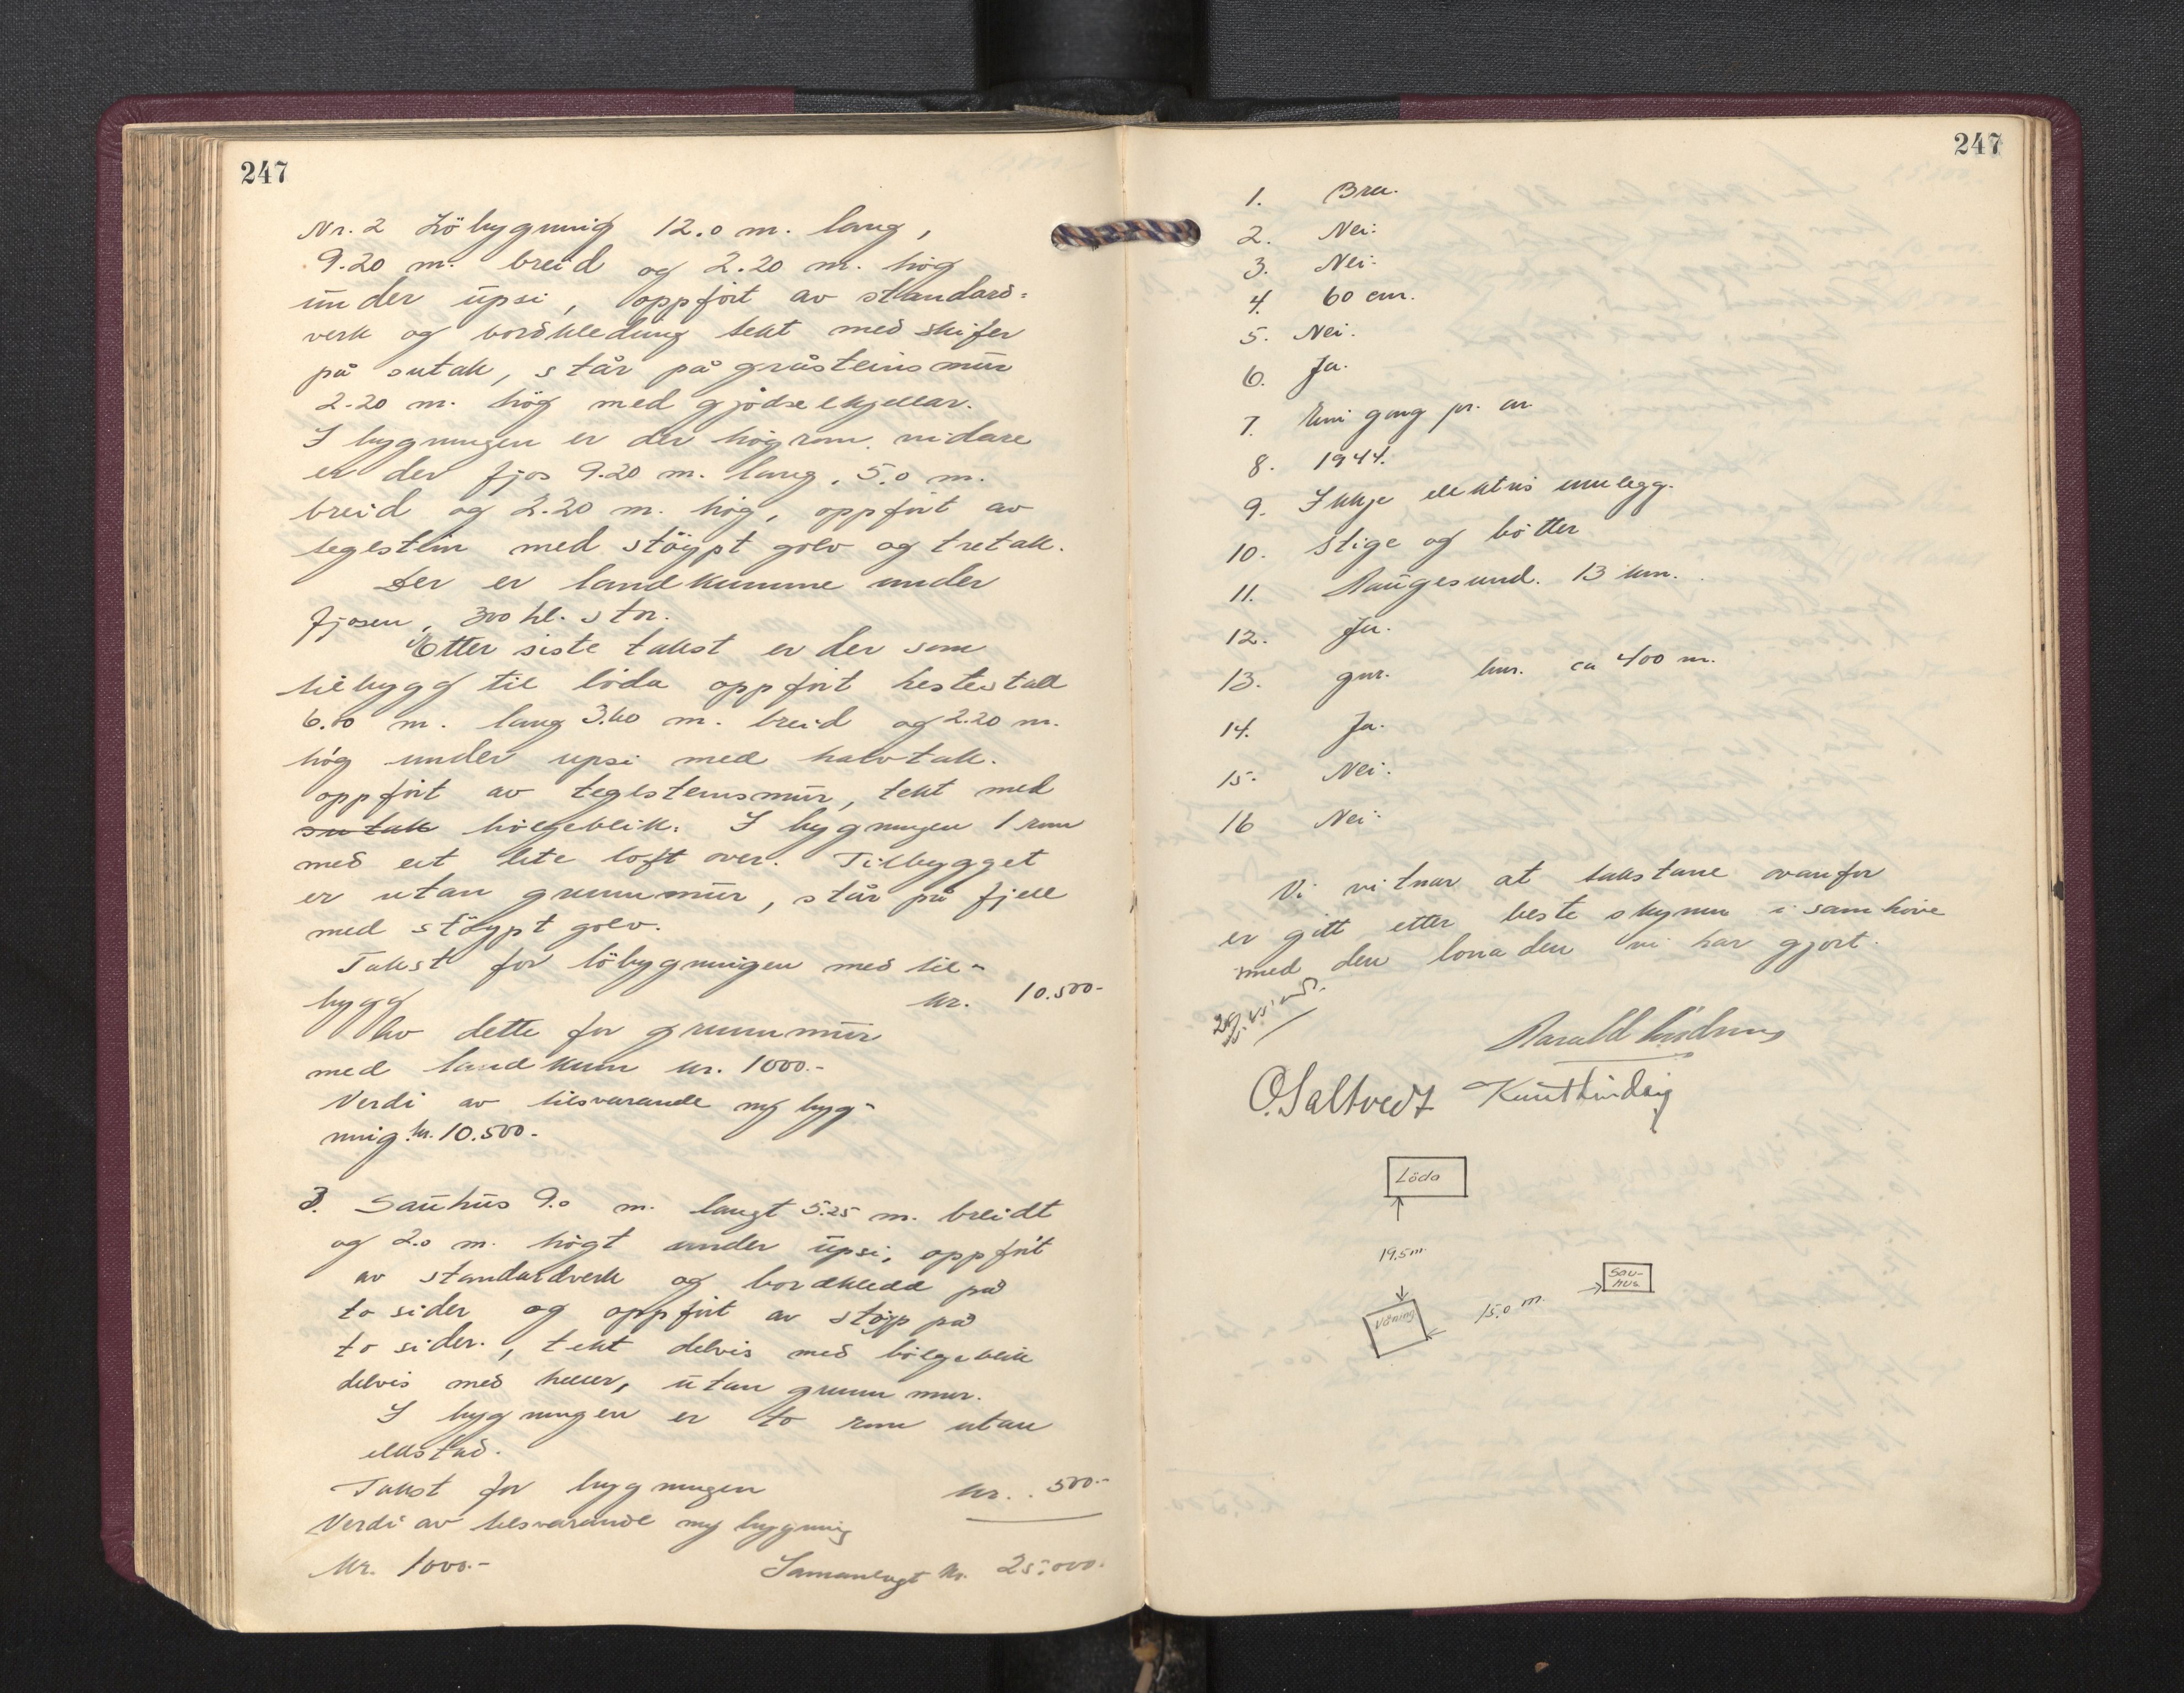 247
Nr. 2 Löbygning 12.0 m. lang,
9.20 m. breid og 2.20 m. høg
under upsi, oppført av standard-
verk og bordkleding tekt med skifer
på sutak, står på gråsteinsmur
2.20 m. høg med gjødselkjellar.
I bygningen er der högrom. vidare
er der fjos 9.20 m. lang, 5.0 m.
breid og 2.20 m. høg, oppført av
teglstein med støypt golv og tretak.
Der er landkumme under
fjosen, 300 hl. stor.
Etter siste takst er der som
tilbygg til löda oppført hestestall
6.10 m. lang 3.60 m. breid og 2.20 m.
høg under upsi med halvtak.
oppført av teglsteinsmur, tekt med
sutak bølgeblik. I bygningen 1 rom
med eit lite loft over. Tilbygget
er utan grunnmur, står på fjell
med støypt golv.
Takst for löbygningen med til-
bygg kr. 10.500-
Av dette for grunnmur
med landkum kr. 1000.-
Verdi av tilsvarande ny byg-
ning kr. 10.500-
3. Sauhus 9.0 m. langt 5.25 m. breidt
og 2.0 m. høgt under upsi, oppført
av standardverk og bordkledd på
to sider og oppført av støyp på
to sider., tekt delvis med bølgeblik
delvis med heller, utan grunnmur.
I bygningen er to rom utan
eldstad.
Takst for bygningen kr. 500.-
Verdi av tilsvarande ny bygning
Kr. 1000.- Samanlagt kr. 25.000.
247
1. Bra.
2. Nei.
3. Nei.
4. 60 cm.
5. Nei.
6. Ja.
7. Ein gong pr. år
8. 1944.
9. Ikkje elektris innlegg.
10. Stige og bøtter
11. Haugesund. 13 km.
12. Ja.
13. gnr. bnr. ca 400 m.
14. Ja.
15. Nei.
16 Nei.
Vi vitnar at takstane ovanfor
er gitt etter beste skynn i samhøve
med den lonaden vi har gjort.
Harald
O. Saltvedt Knut
Löda
19.5 m.
Sau-
hus
15.0 m.
Våning